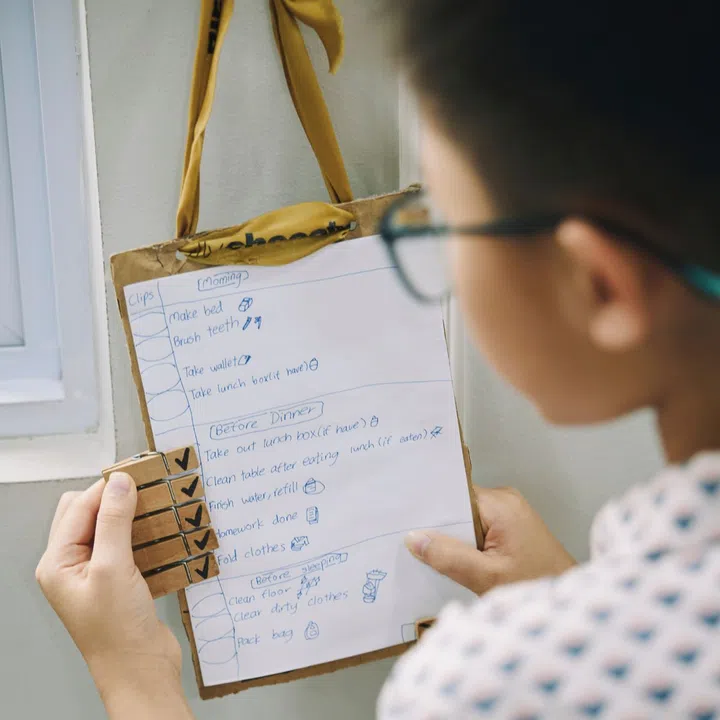 Clips
Morning
Make bed
Brush teeth
Take wallet
Take lunch box (if have)
Before Dinner
Take out lunch box (if have)
Clean table after eating lunch (if eaten)
Finish water, refill
Homework done
Fold clothes
Before sleeping
Clean floor
Clear dirty clothes
Pack bag